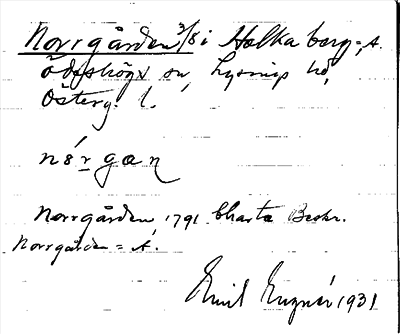 Norrgården 3/8 i Holkaberg, A.
Ödeshögs sn, Lysings hd,
Österg. l.
nórgan
Norrgården 1791 Charta Beskr.
Norrgården = A.
Emil Engnér 1931